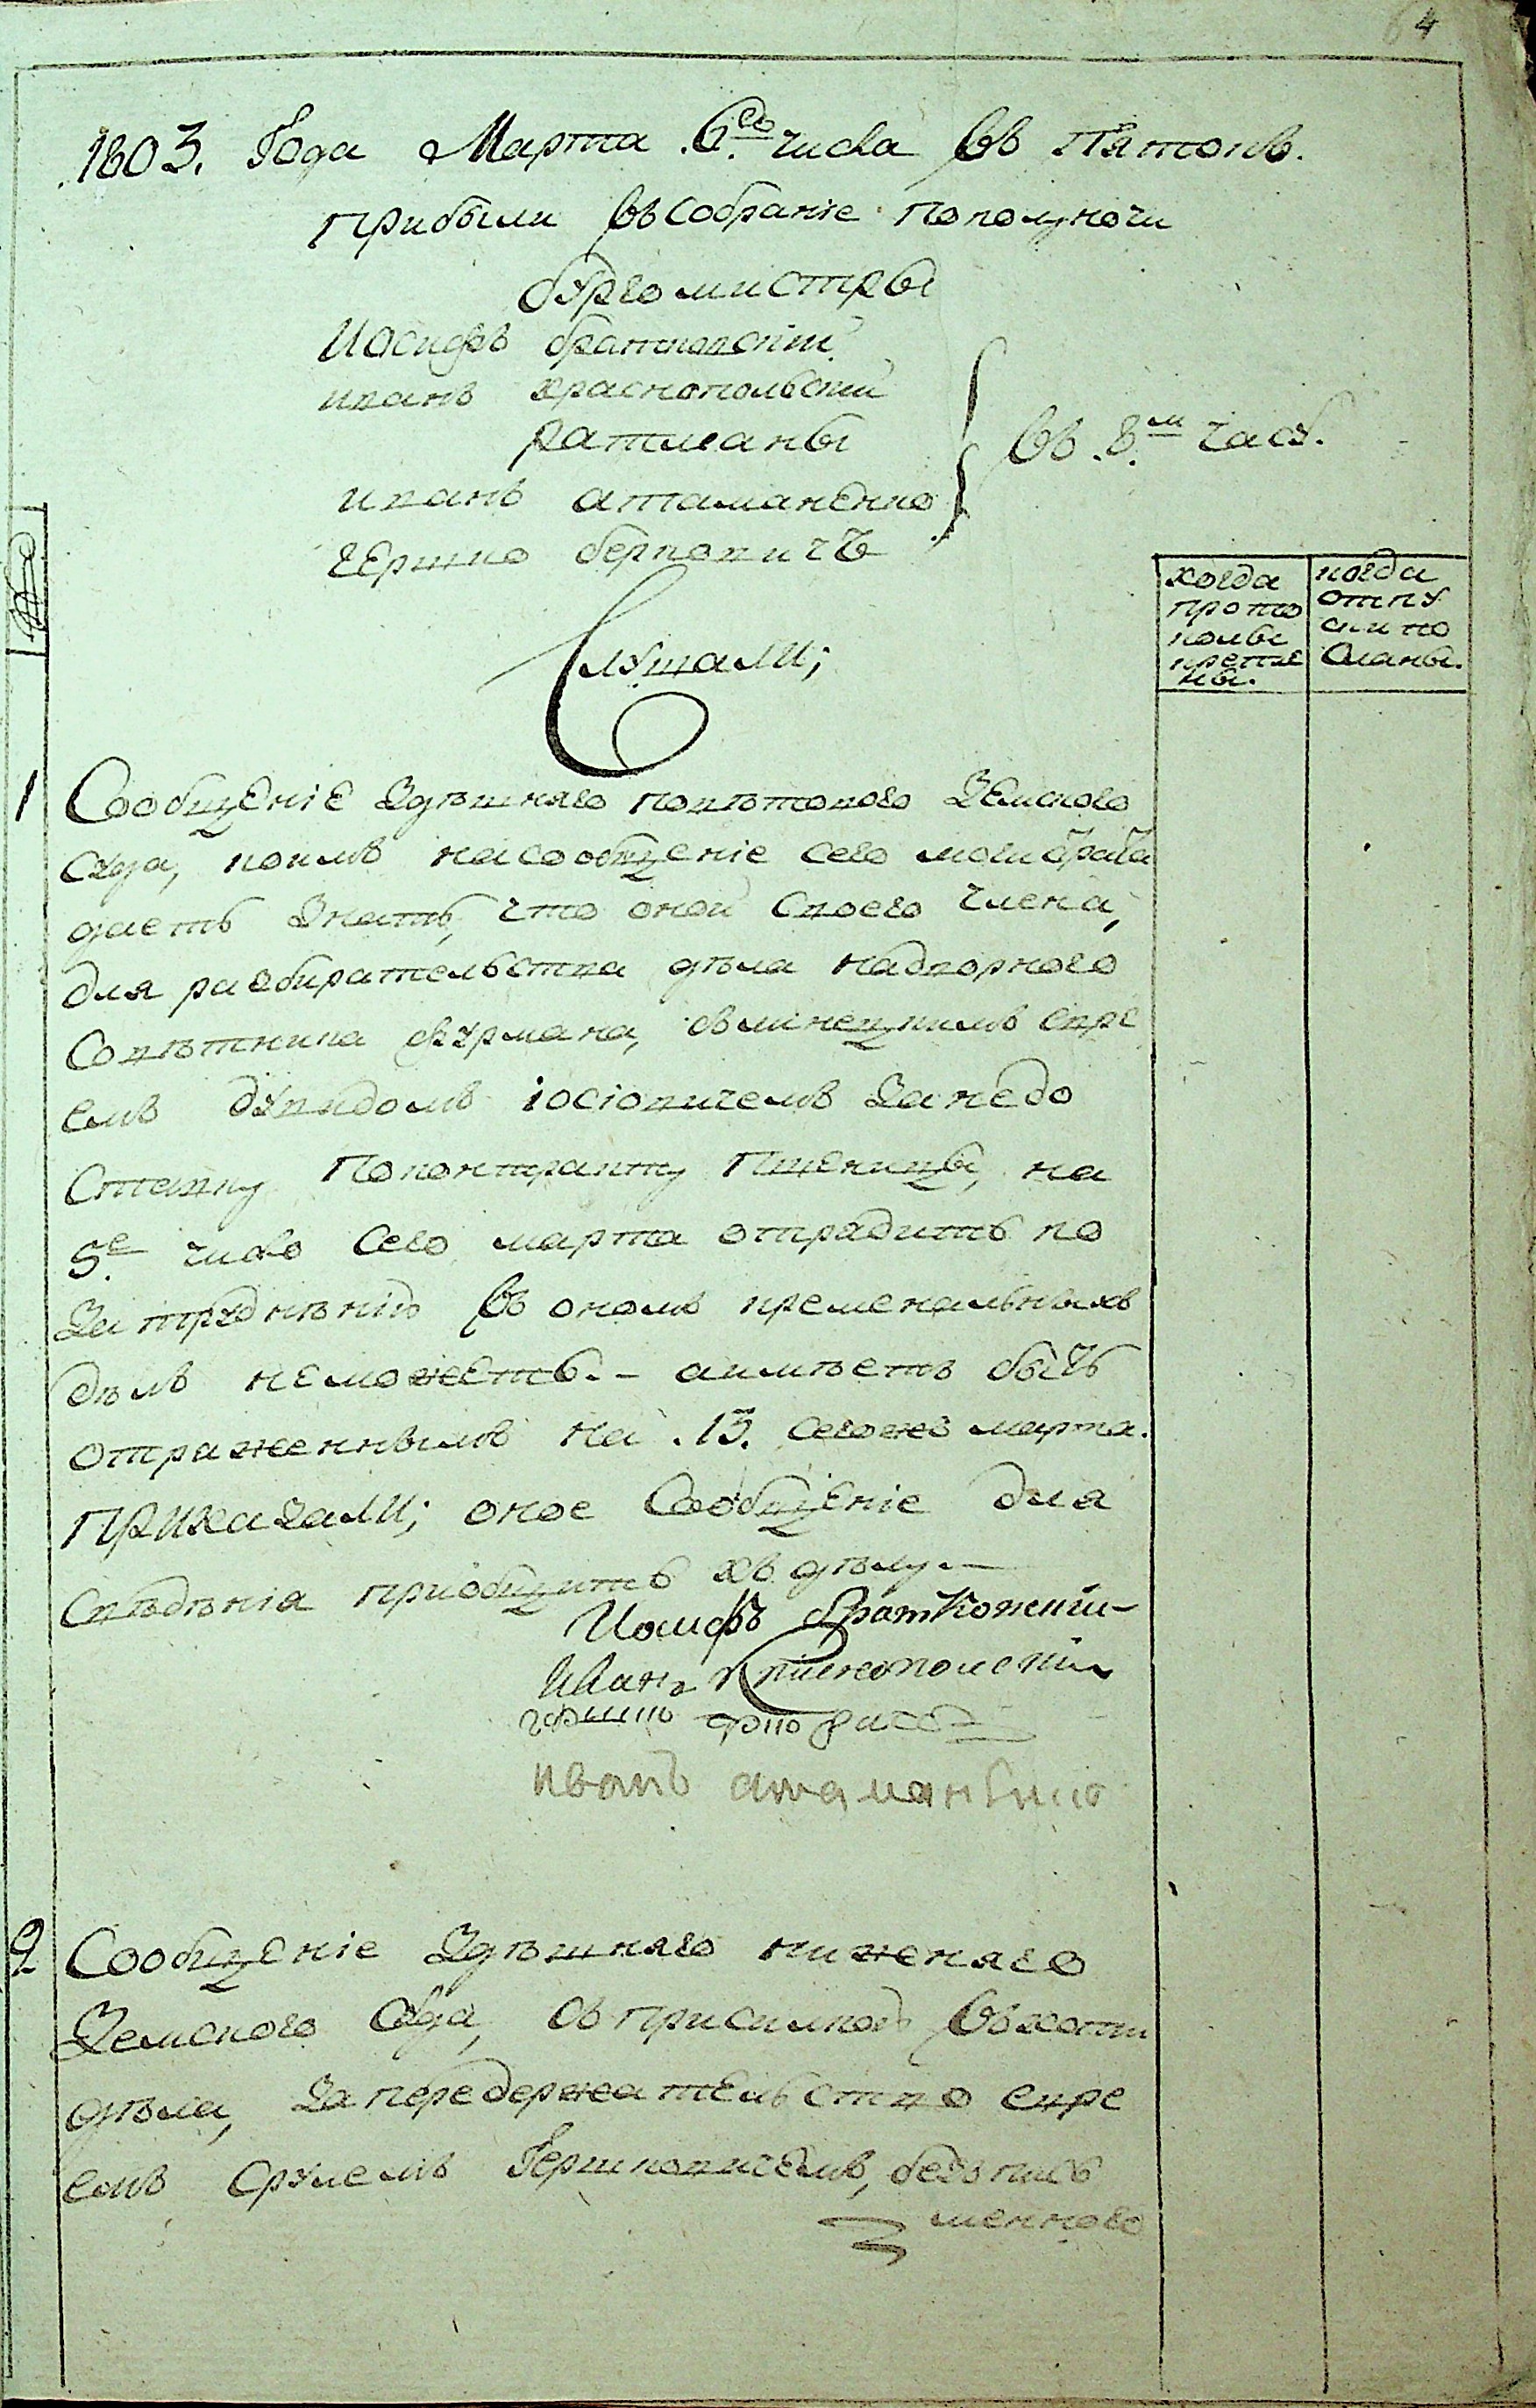 64
1803. Года Марта 6го числа въ Пятокъ.
Прибыли въ собраніе пополуночи
бургомистры
Иосифъ братковскій
иванъ краснопольскій
ратманы
въ 8м часу.
иванъ атаманенко
гершко берковичъ
когда
прото
колы
крепле
ны.
когда
отпу
ски по
сланы.
Слушали;
1 Сообщеніе Здѣшняго повѣтового Земского
суда, коимъ на сообщеніе сего магистрата
даетъ Знать, что оной своего члена,
для разбирательства дѣла надворного
Совѣтника фурмана, съ евре
емъ іосіовичемъ Занедо
ставку Поконтракту Пшеницы, на
5е число сего марта отрядить по
Затруднѣнію въ ономъ временальныхъ
дѣлъ неможетъ. - аимѣетъ быть
отряженнымъ на 13. сегожъ марта.
Приказали; оное Сообщеніе для
Свѣдѣнія пріобщить къ дѣлу. —
Иосифъ Братковский
Иванъ Краснополский
иванъ атаманенко
2 Сообщеніе Здѣшняго нижняго
Земского суда, съ присылкою въ копіи
дѣла, Запередержательство евре
емъ Срулемъ Гершковичемъ, безъ пись
менного